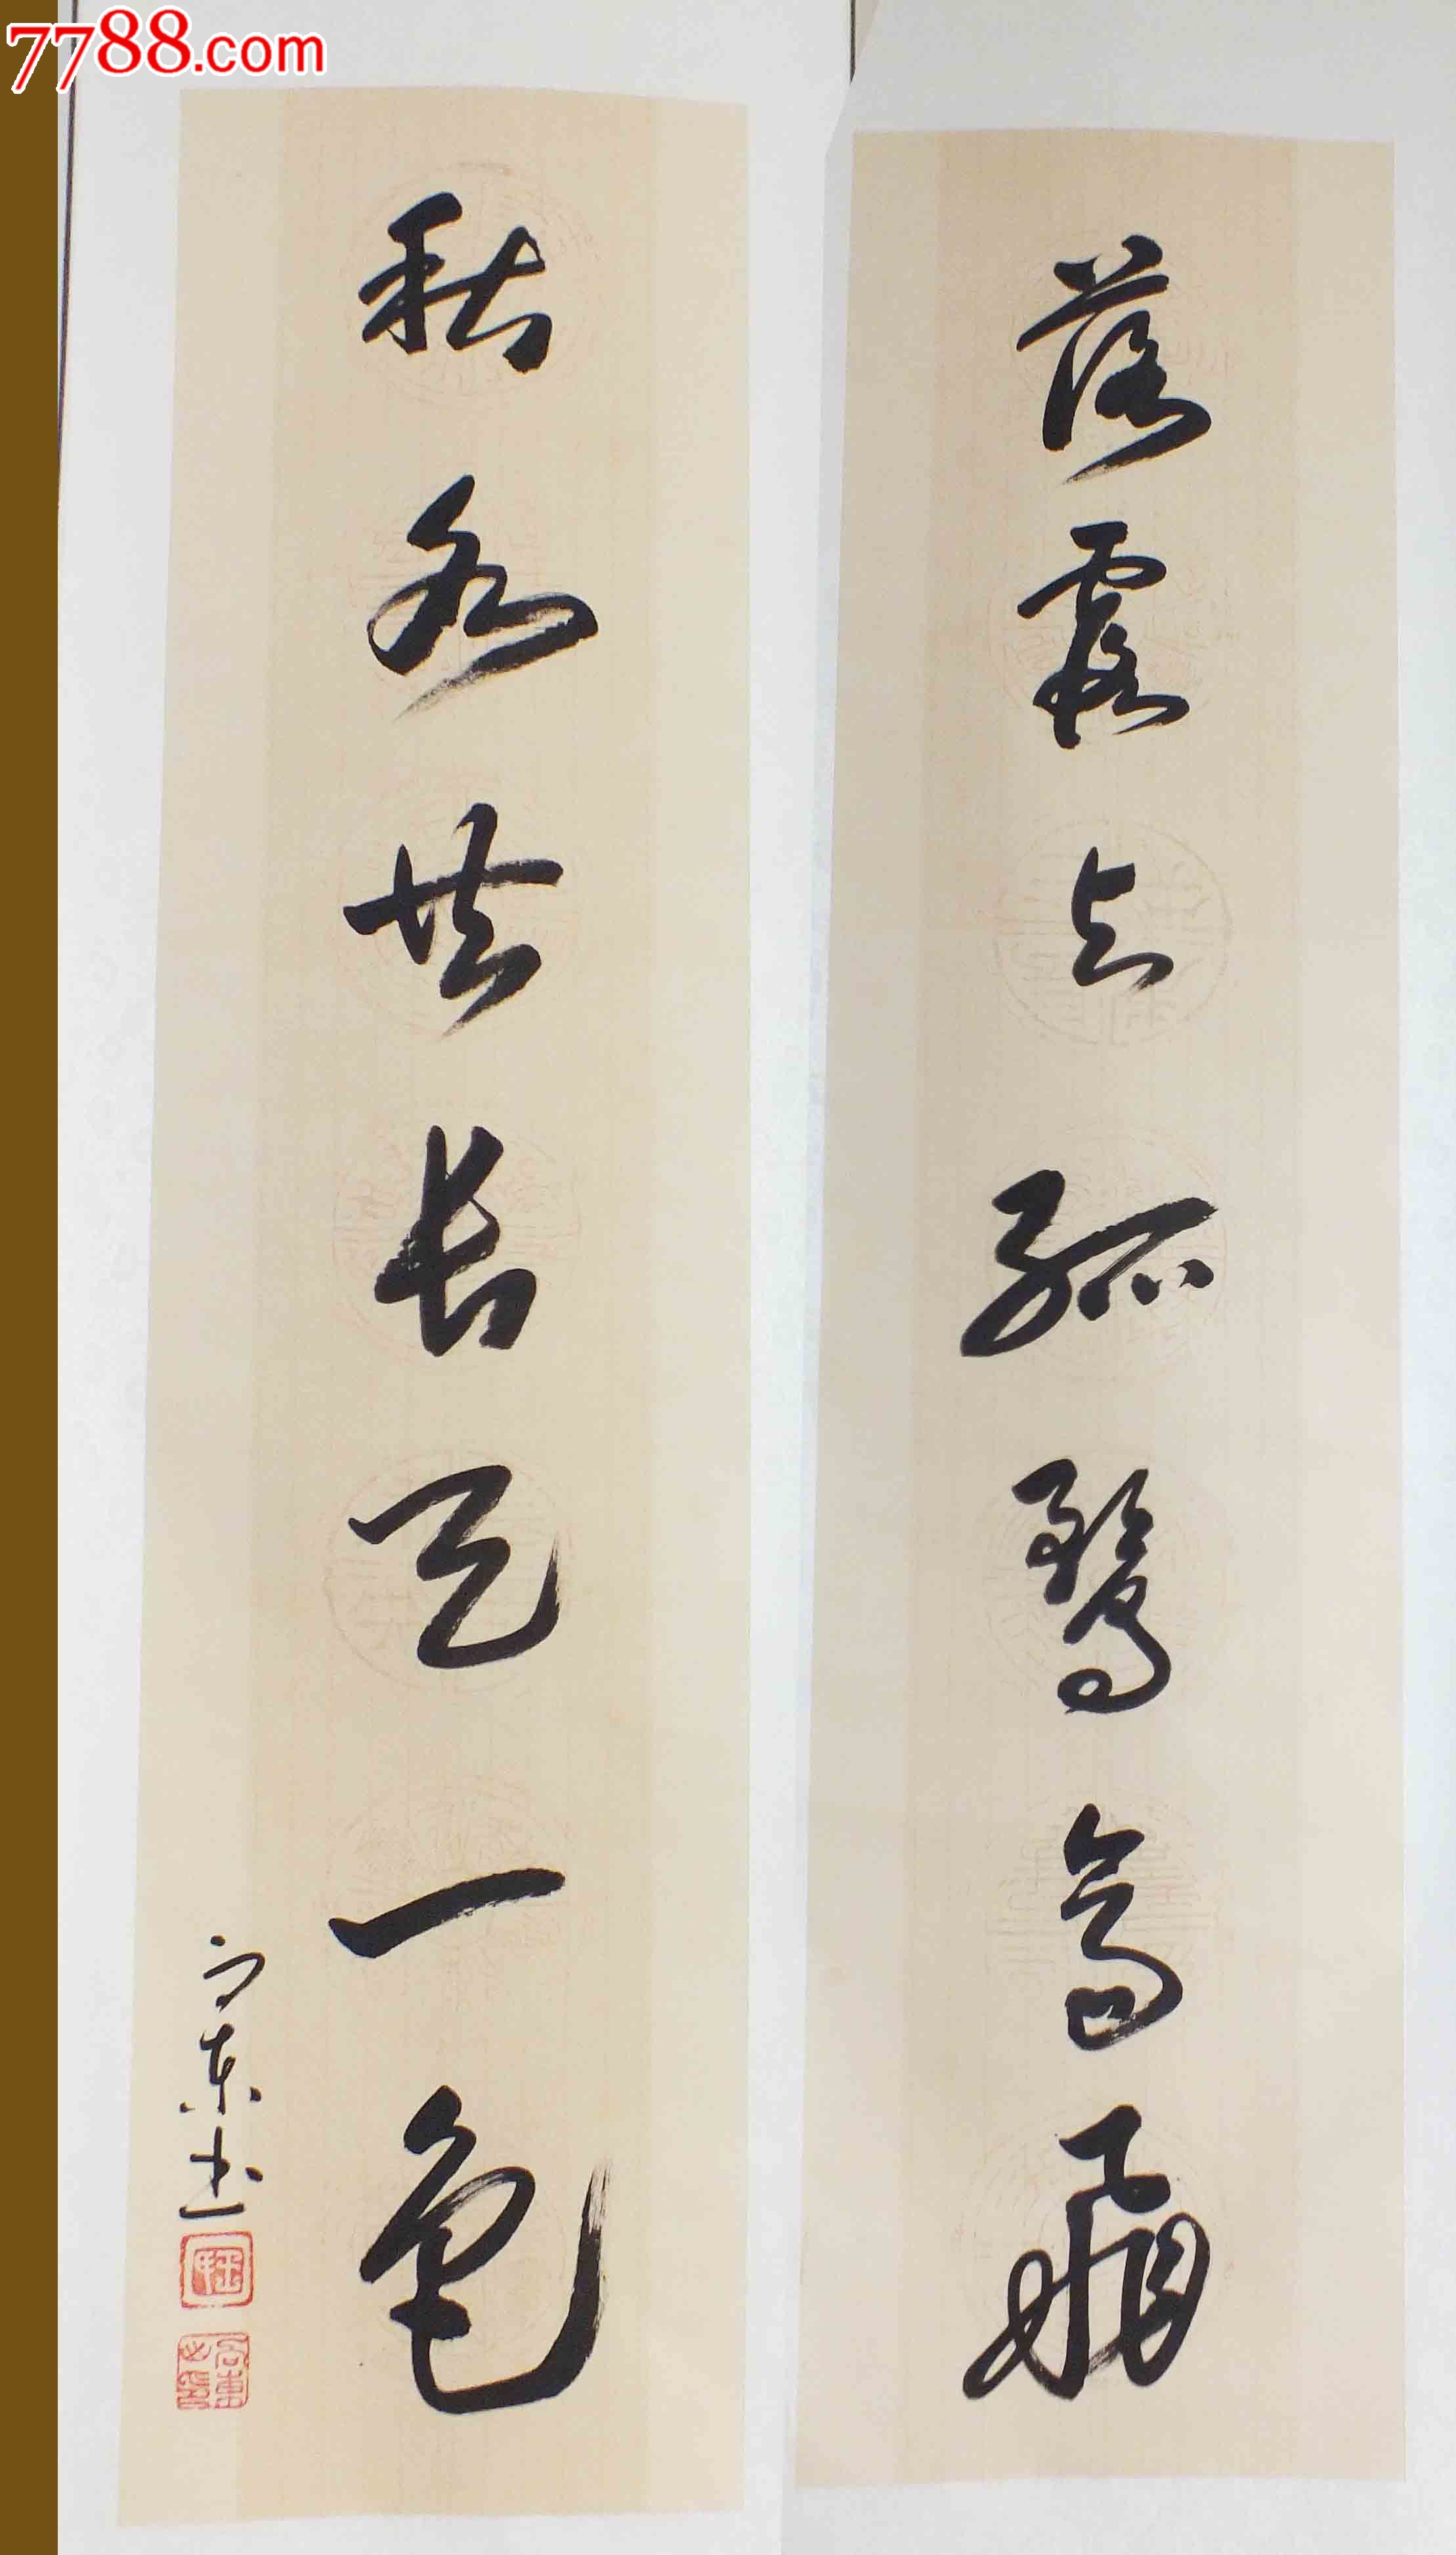 7788.com
落霞与孤鹜齐飛
秋水共长天一色
东书